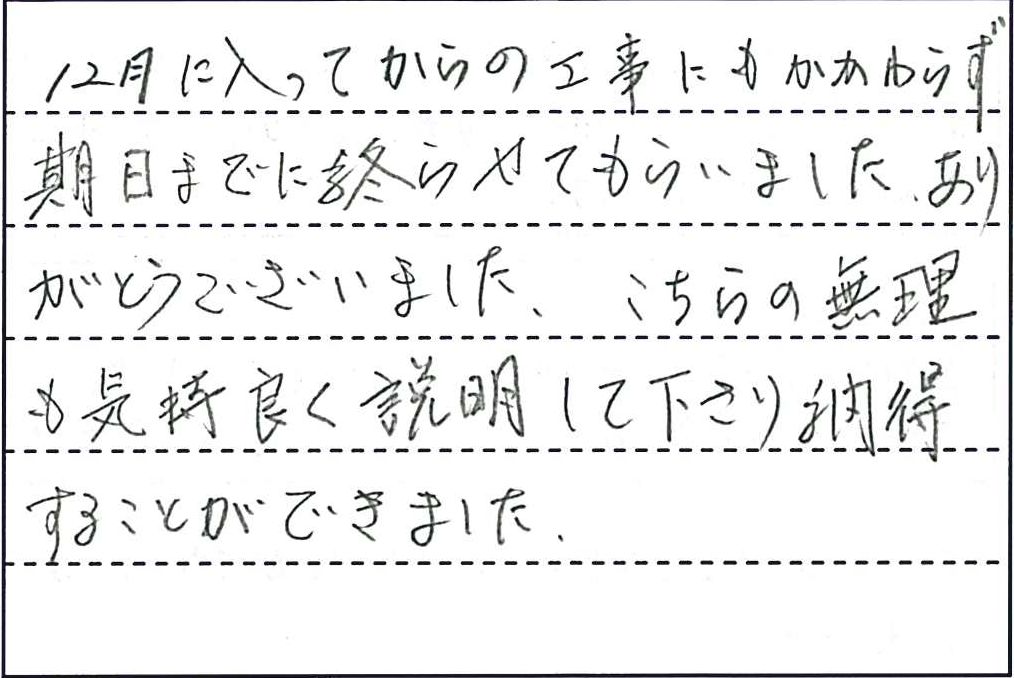 12月に入ってからの工事にもかかわらず
期日までに終らせてもらいました、あり
がとうございました、 こちらの無理
も気持良く説明して下さり納得
することができました、